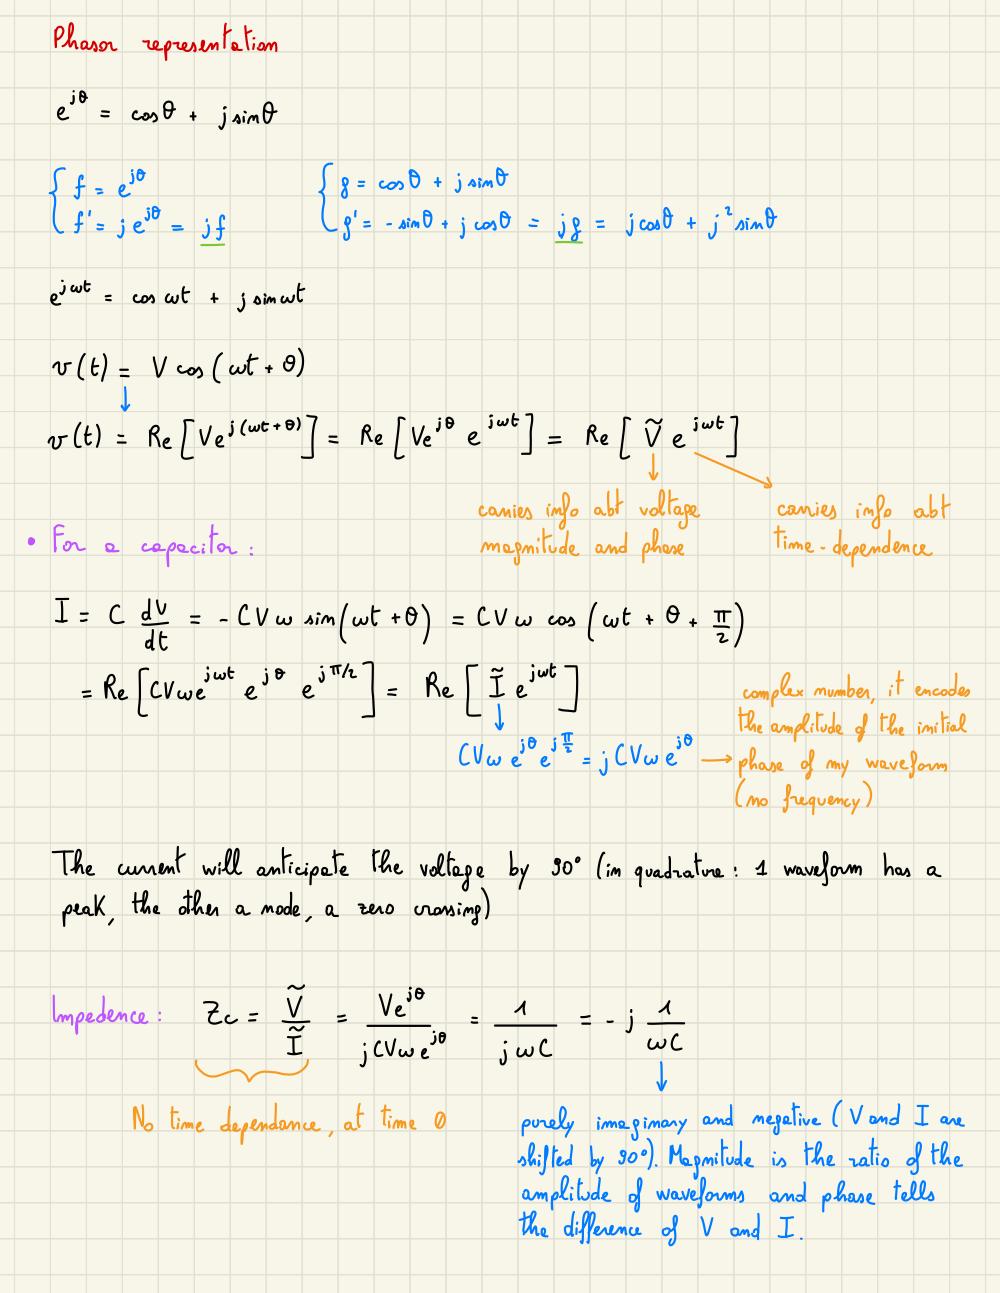 Phasor representation
e^{jθ} = cosθ + j sinθ
{ f = e^{jθ}
f' = j e^{jθ} = jf
{ g = cosθ + j sinθ
g' = - sinθ + j cosθ = jg = j cosθ + j² sinθ
e^{jωt} = cos ωt + j sin ωt
v(t) = V cos(ωt + θ)
v(t) = Re[Ve^{j(ωt+θ)}] = Re[Ve^{jθ} e^{jωt}] = Re[Ṽ e^{jωt}]
carries info abt voltage
magnitude and phase
carries info abt
time-dependence
• For a capacitor:
I = C dV/dt = - CVω sin(ωt + θ) = CVω cos(ωt + θ + π/2)
= Re[CVωe^{jωt} e^{jθ} e^{jπ/2}] = Re[Ĩ e^{jωt}]
CVω e^{jθ} e^{jπ/2} = j CVω e^{jθ}
complex number, it encodes
the amplitude of the initial
phase of my waveform
(no frequency)
The current will anticipate the voltage by 90° (in quadrature: 1 waveform has a
peak, the other a node, a zero crossing)
Impedence: Zc = Ṽ/Ĩ = Ve^{jθ}/(jCVω e^{jθ}) = 1/(jωC) = - j 1/(ωC)
No time dependance, at time 0
purely imaginary and negative (V and I are
shifted by 90°). Magnitude is the ratio of the
amplitude of waveforms and phase tells
the difference of V and I.